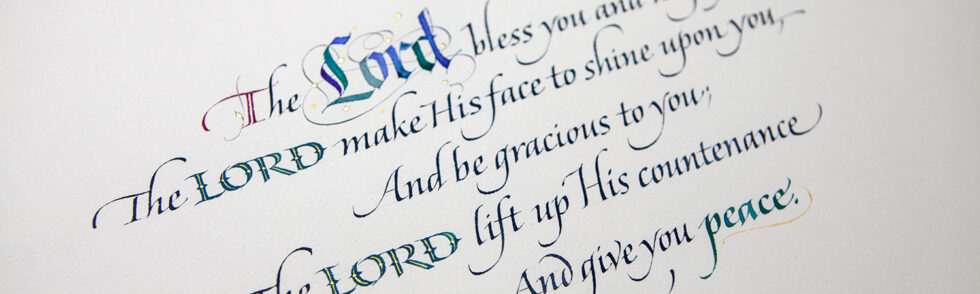 The Lord bless you and
The LORD make His face to shine upon you,
And be gracious to you;
The LORD lift up His countenance
And give you peace.